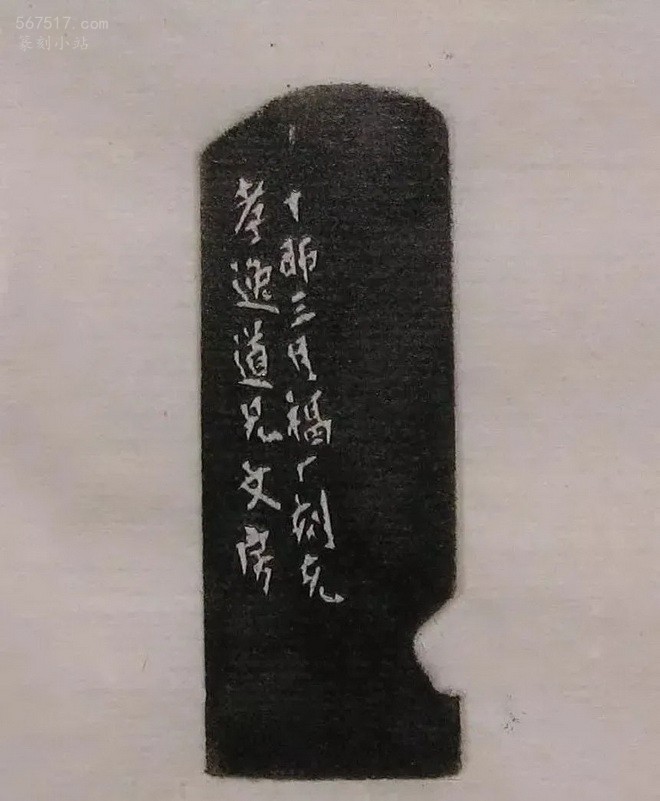 567517.com
篆刻小站
丁卯三月福厂刻充
孝逸道兄文房